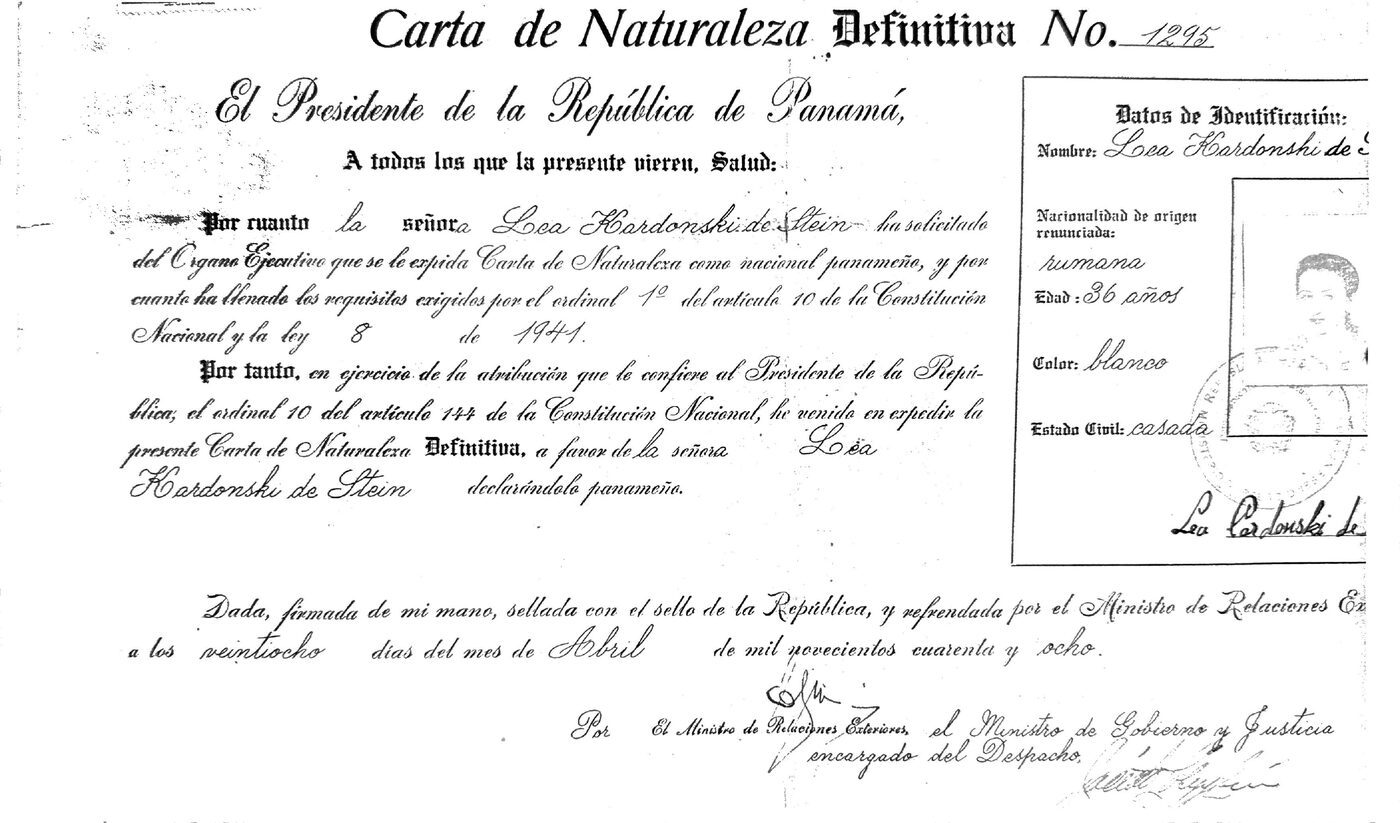 Carta de Naturaleza Definitiva No. 1295
El Presidente de la República de Panamá,
A todos los que la presente vieren, Salud:
Por cuanto la señora Lea Kardonski de Stein ha solicitado
del Organo Ejecutivo que se le expida Carta de Naturaleza como nacional panameño, y por
cuanto ha llenado los requisitos exigidos por el ordinal 1º del artículo 10 de la Constitución
Nacional y la ley 8 de 1941.
Por tanto, en ejercicio de la atribución que le confiere al Presidente de la Repú-
blica, el ordinal 10 del artículo 144 de la Constitución Nacional, he venido en expedir la
presente Carta de Naturaleza Definitiva, a favor de la señora Lea
Kardonski de Stein declarándolo panameño.
Datos de Identificación:
Nombre: Lea Kardonski de S
Nacionalidad de origen
renunciada:
rumana
Edad: 36 años
Color: blanco
Estado Civil: casada
Lea Cardonski de
Dada, firmada de mi mano, sellada con el sello de la República, y refrendada por el Ministro de Relaciones Ex
a los veintiocho días del mes de Abril de mil novecientos cuarenta y ocho.
Por El Ministro de Relaciones Exteriores, el Ministro de Gobierno y Justicia
encargado del Despacho,